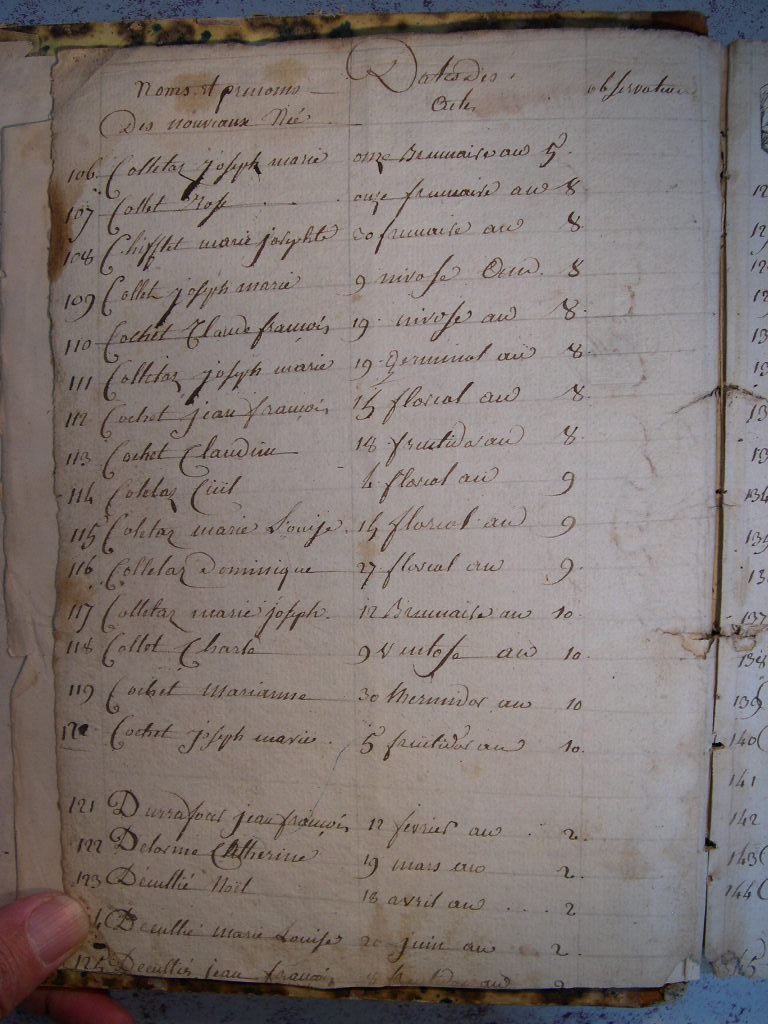 Noms et prenoms Dates des observations
Des nouveaux Née Actes
106 Colletaz joseph marie onze Brumaire au 5
107 Collet Rose onze frimaire au 8
108 Chifflet marie josephte 20 frimaire au 8
109 Collet joseph marie 9 nivose 8
110 Cochet Claude francois 19 nivose au 8
111 Colletaz joseph marie 19 Germinal au 8
112 Cochet jean francois 15 floreal au 8
113 Cochet Claudine 18 fructidor au 8
114 Coletaz 4 floreal au 9
115 Coletaz marie Louise 14 floreal au 9
116 Colletaz Dominique 27 floreal au 9
117 Colletaz marie joseph 12 Brumaire au 10
118 Collet Charle 9 ventose au 10
119 Cochet marianne 30 thermidor au 10
120 Cochet joseph marie 5 fructidor au 10
121 Durrafour jean francois 12 fevrier au 2
122 Delorme Catherine 19 mars au 2
123 Decullié Noël 18 avril au 2
4 Decullié marie Louise 20 juin au 2
125 Decullié jean francois au 2
12
12
12
12
13
13
13
13
134
135
13
137
138
139
140
141
142
143
144